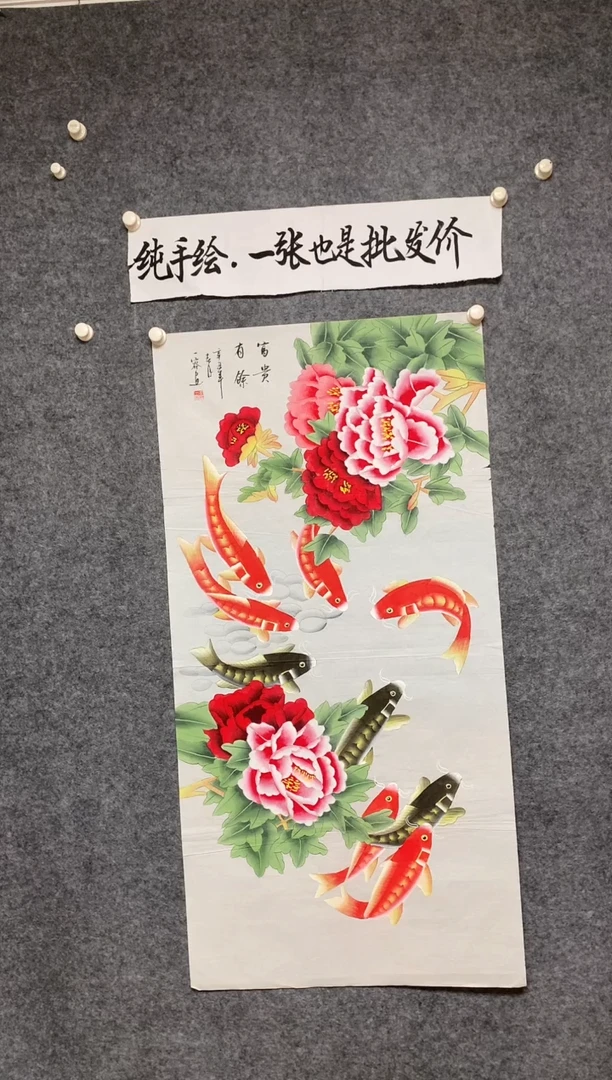 纯手绘.一张也是批发价
富贵
有馀